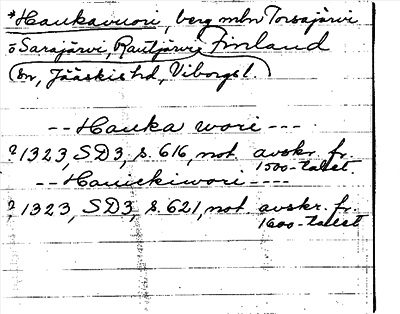 *Haukavuori, berg mln Torsajärvi
o Sarajärvi, Rautjärvi Finland
sn, Jääskis hd, Viborgs l.
-- Hauka wori ---
? 1323, SD3, s. 616, not. avskr. fr.
1500-talet.
-- Hauekiwori ----
? 1323, SD3, s. 621, not. avskr. fr.
1600-talet